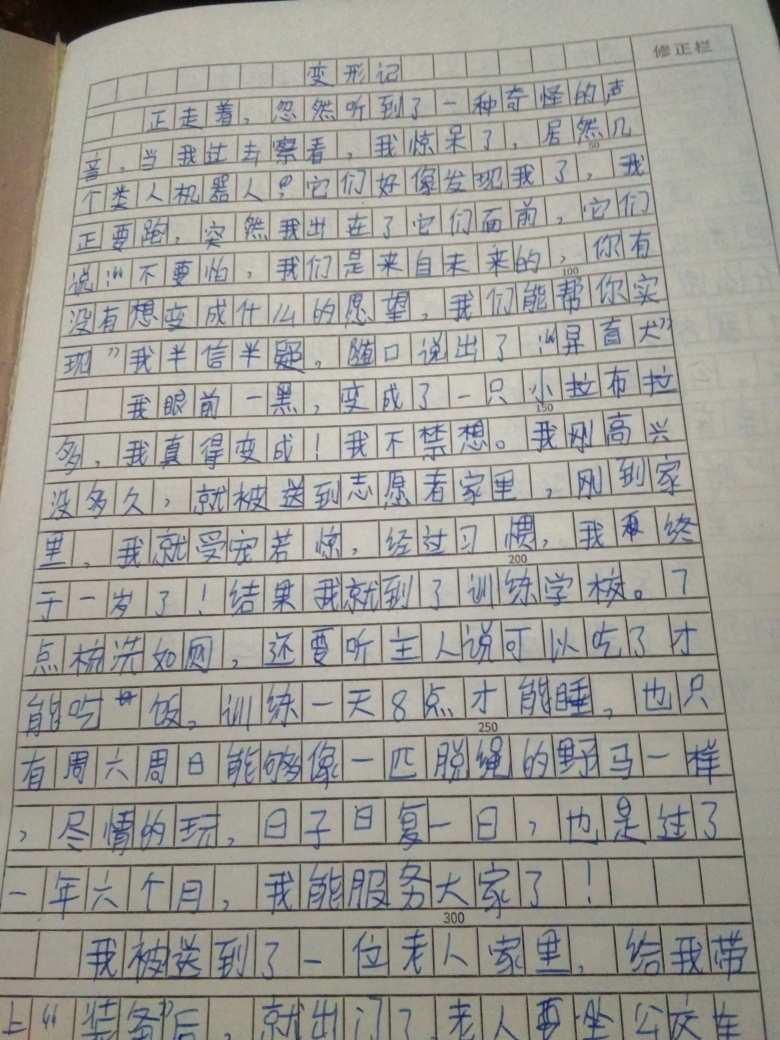 修正栏
变形记
正走着，忽然听到了一种奇怪的声
音，当我过去察看，我惊呆了，居然几
50
个类人机器人？它们好像发现我了，我
正要跑，突然我出在了它们面前，它们
说：“不要怕，我们是来自未来的，你有
100
没有想变成什么的愿望，我们能帮你实
现”我半信半疑，随口说出了：“导盲犬”
我眼前一黑，变成了一只小拉布拉
150
多，我真得变成！我不禁想。我刚高兴
没多久，就被送到志愿者家里，刚到家
里，我就受宠若惊，经过习惯，我终
200
于一岁了！结果我就到了训练学校。7
点梳洗如厕，还要听主人说可以吃了才
能吃饭，训练一天8点才能睡，也只
250
有周六周日能够像一匹脱绳的野马一样
，尽情的玩，日子日复一日，也是过了
一年六个月，我能服务大家了！
300
我被送到了一位老人家里，给我带
上“装备”后，就出门了，老人要坐公交车